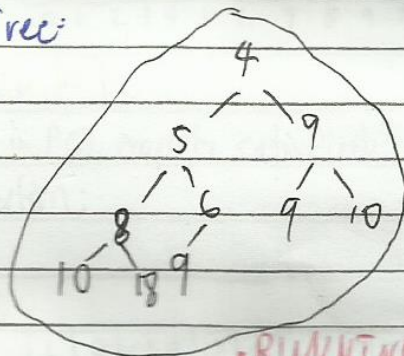 Tree:
4
5 9
8 6 9 10
10 18 9
RUNNING